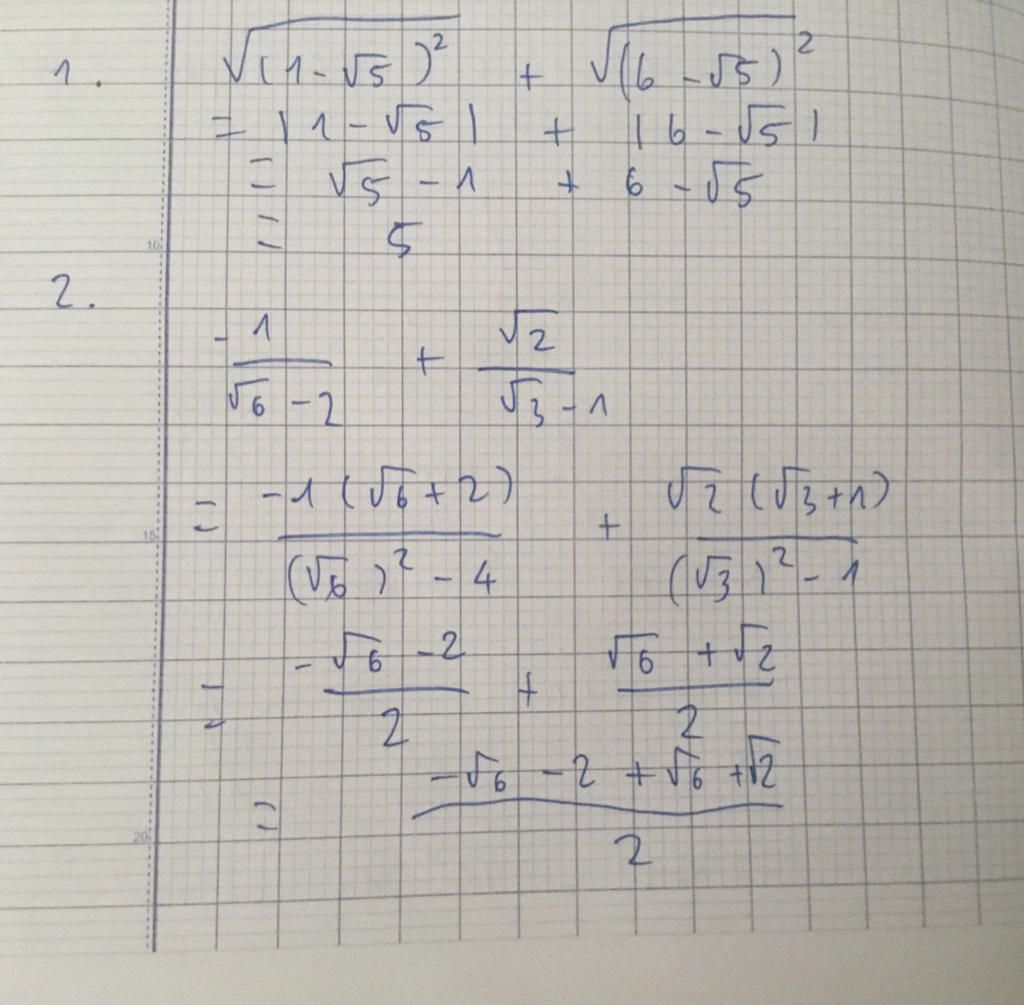 1. √(1-√5)² + √(6-√5)²
= |1-√5| + |6-√5|
= √5 - 1 + 6 - √5
10
= 5
2.
-1/(√6 - 2) + √2/(√3 - 1)
15
= -1(√6+2)/((√6)² - 4) + √2(√3+1)/((√3)² - 1)
= (-√6 - 2)/2 + (√6 + √2)/2
20
= (-√6 - 2 + √6 + √2)/2